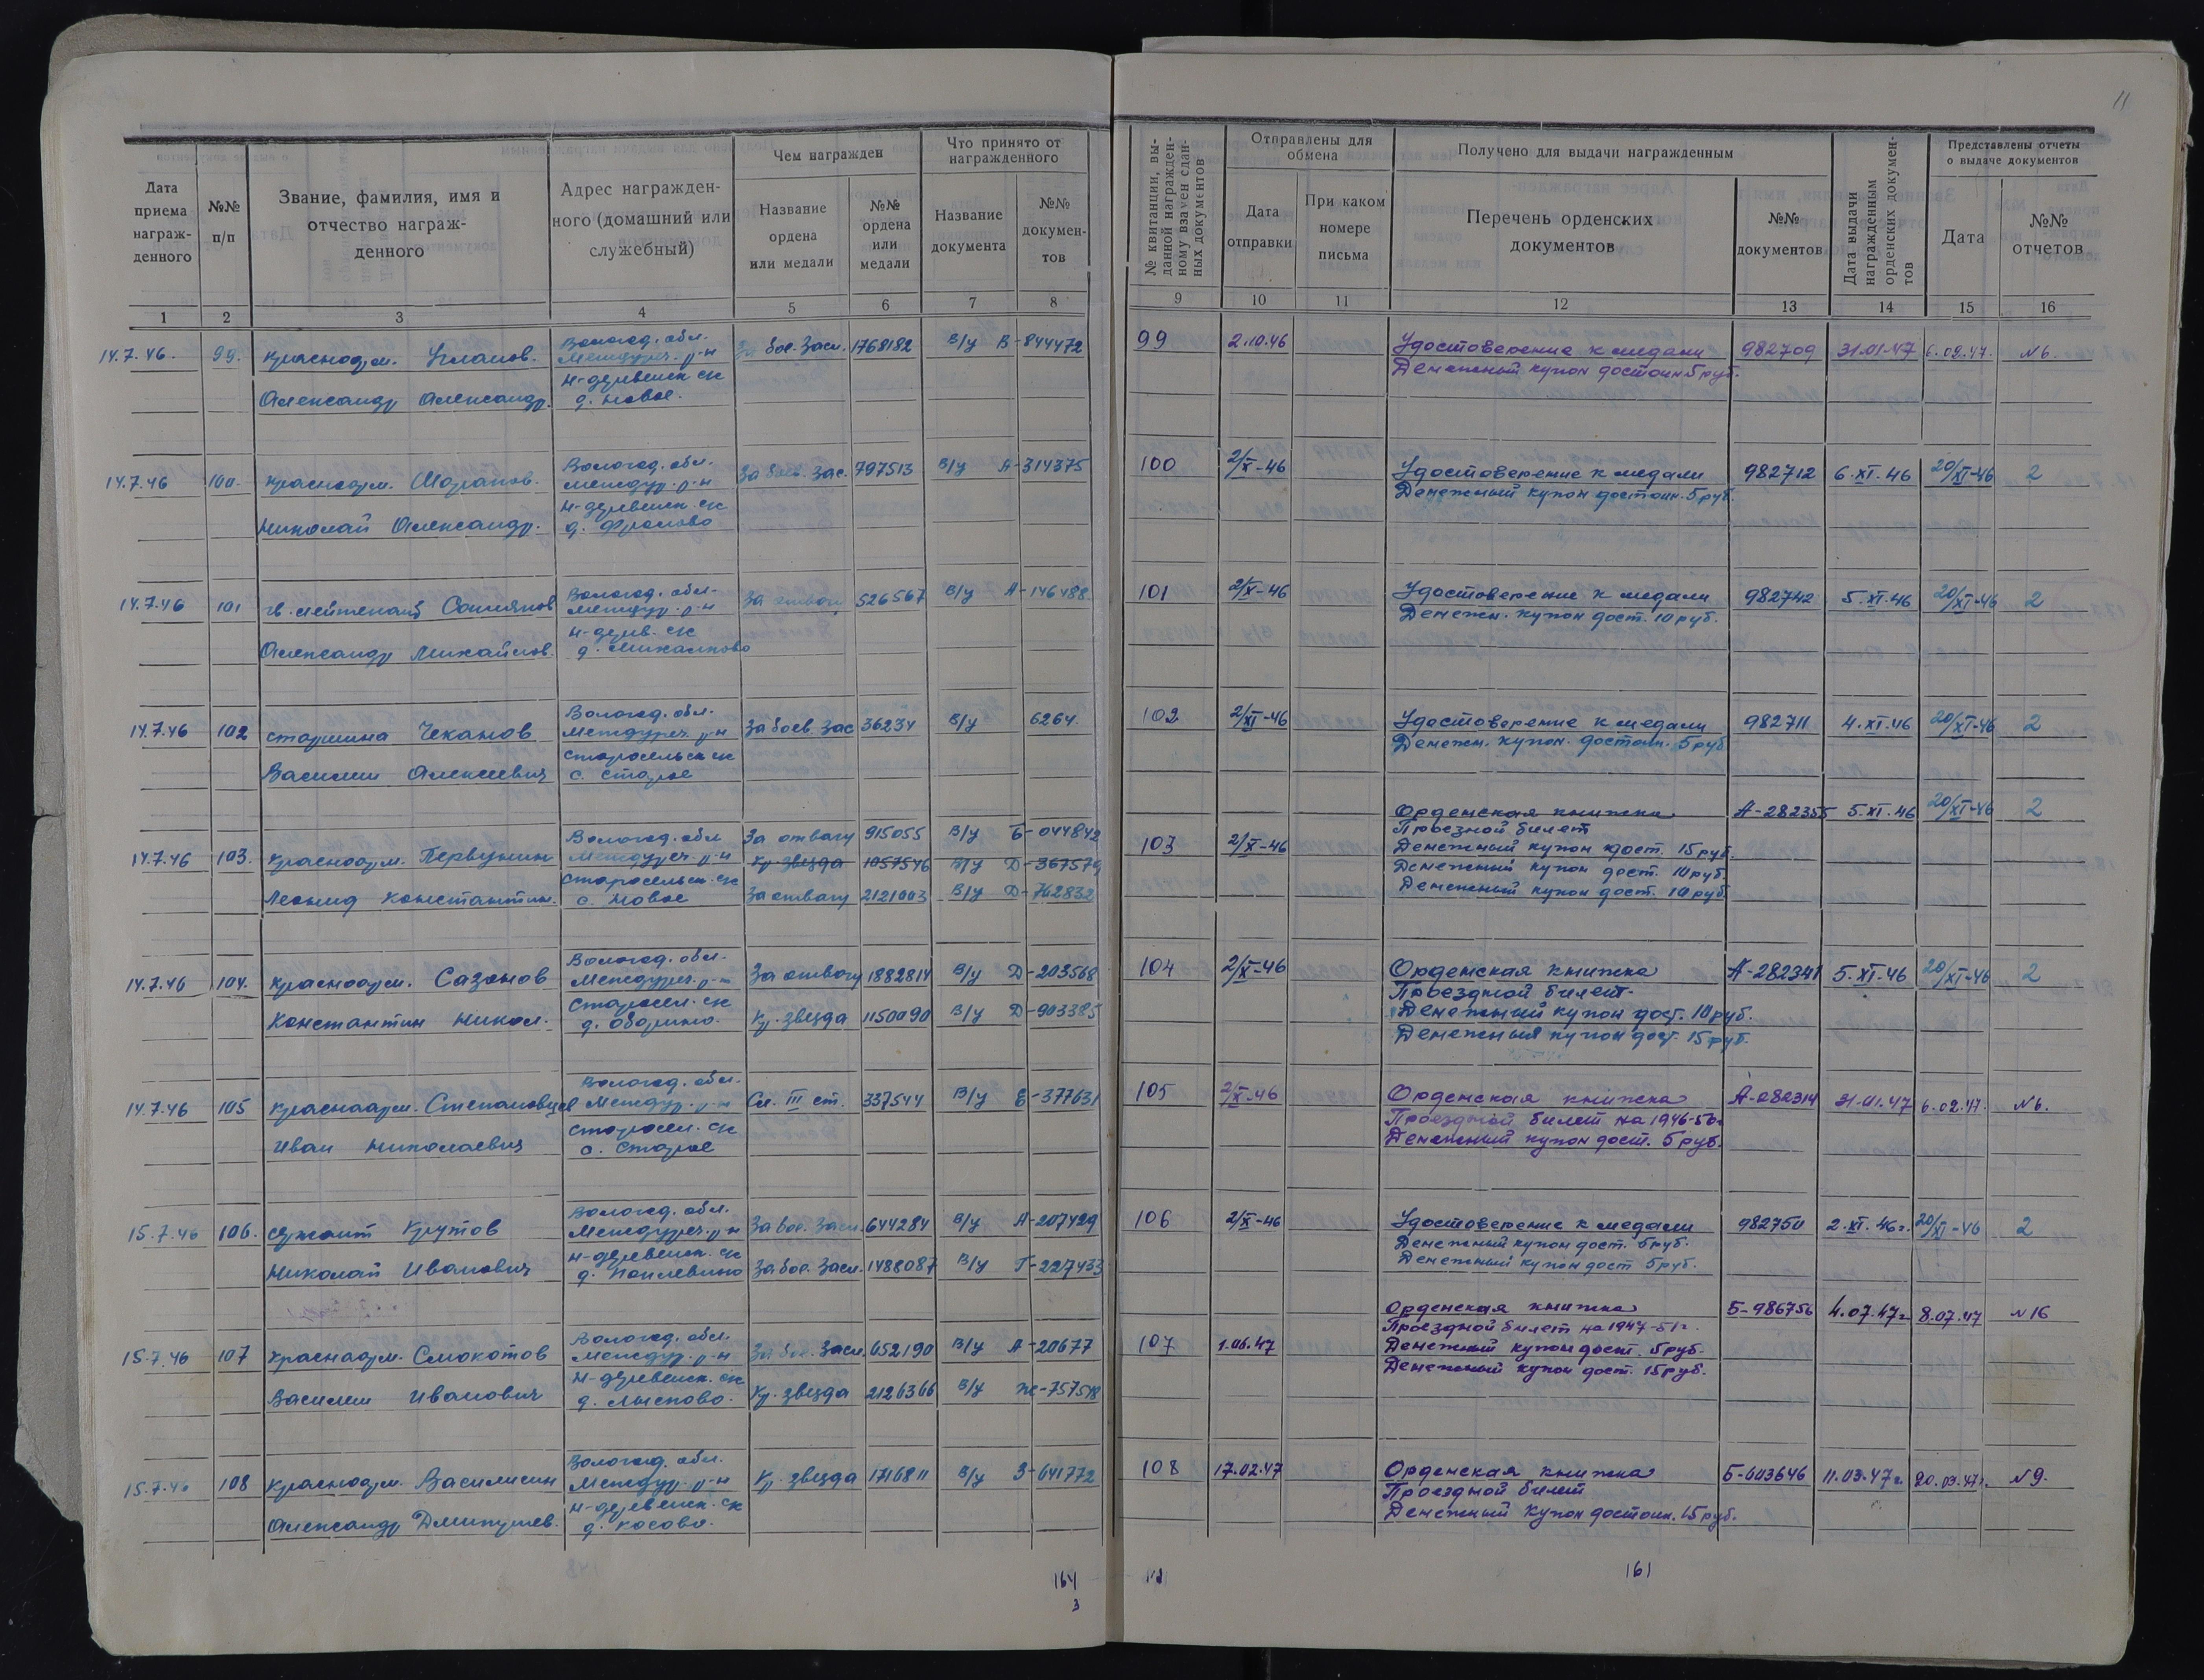 11
Дата приема награж-денного
№№ п/п
Звание, фамилия, имя и отчество награж-денного
Адрес награжден-ного (домашний или служебный)
Чем награжден
Название ордена или медали
№№ ордена или медали
Что принято от награжденного
Название документа
№№ докумен-тов
№ квитанции, вы-данной награжден-ному взамен сдан-ных документов
Отправлены для обмена
Дата отправки
При каком номере письма
Получено для выдачи награжденным
Перечень орденских документов
№№ документов
Дата выдачи награжденным орденских докумен-тов
Представлены отчеты о выдаче документов
Дата
№№ отчетов
1 2 3 4 5 6 7 8 9 10 11 12 13 14 15 16
14.7.46. 99. красноарм. Вологод. обл. Междуреч. р-н За боев. Засл. 1768182 В/у В-844472 99 2.10.46 Удостоверение к медали 982709 31.01.47 6.02.47. №6.
Денежный купон достоин 5 руб.
Александр Александр. Н-деревенск с/с
д. Новое.
14.7.46 100. красноарм. Шарапов. Вологод. обл. Междур. р-н За боев. Зас. 797513 В/у А-314375 100 2/X-46 Удостоверение к медали 982712 6.XI.46 20/XI-46 2
Денежный купон достоин. 5 руб.
Николай Александр. Н-деревенск с/с
д. Фролово
14.7.46 101 гв. лейтенант Вологод. обл. Междур. р-н За отвагу 526567 В/у А-146488 101 2/X-46 Удостоверение к медали 982742 5.XI.46 20/XI-46 2
Денежн. купон дост. 10 руб.
Александр Михайлов. Н-дерев. с/с
14.7.46 102 старшина Чеканов Вологод. обл. Междуреч. р-н За боев. Зас 36234 В/у 6264. 102 2/XI-46 Удостоверение к медали 982711 4.XI.46 20/XI-46 2
Денежн. купон. достоин. 5 руб
Василий Алексеевич Старосельск с/с
с. Старое
Орденская книжка А-282355 5.XI.46 20/XI-46 2
Проездной билет
14.7.46 103. красноарм. Первунин Вологод. обл Междуреч. р-н За отвагу 915055 В/у Б-044842 103 2/X-46 Денежный купон дост. 15 руб.
Кр. звезда 1057546 В/у Д-367579 Денежный купон дост. 10 руб.
Леонид Константин. Старосельск. с/с
с. Новое За отвагу 2121003 В/у Д-762832 Денежный купон дост. 10 руб
14.7.46 104. красноарм. Сазонов Вологод. обл. Междуреч. р-н За отвагу 1882814 В/у Д-203568 104 2/X-46 Орденская книжка А-282341 5.XI.46 20/XI-46 2
Проездной билет.
Константин Никол. Старосел. с/с
Кр. звезда 1150090 В/у Д-903385 Денежный купон дост. 10 руб.
Денежный купон дост. 15 руб.
14.7.46 105 красноарм. Степановцев Вологод. обл. Междур. р-н Сл. III ст. 337544 В/у Е-377631 105 2/X-46 Орденская книжка А-282314 31.01.47 6.02.47. №6.
Проездной билет на 1946-50г
Иван Николаевич Старосел. с/с
с. Старое Денежный купон дост. 5 руб.
15.7.46 106. сержант Крутов Вологод. обл. Междуреч. р-н За боев. Засл. 644284 В/у А-207429 106 2/X-46 Удостоверение к медали 982750 2.XI.46г. 20/XI-46 2
Денежный купон дост. 5 руб.
Николай Иванович Н-деревенск. с/с
За боев. Засл. 1488087 В/у Г-227433 Денежный купон дост 5 руб.
Орденская книжка Б-986756 4.07.47г 8.07.47 №16
Проездной билет на 1947-51г.
15.7.46 107 красноарм. Смокотов Вологод. обл. Междур. р-н За боев. Засл. 652190 В/у А-20677 107 1.06.47 Денежный купон дост. 5 руб.
Денежный купон дост. 15 руб.
Василий Иванович Н-деревенск. с/с
д. Лысково. Кр. звезда 2126366 В/у
15.7.46 108 красноарм. Василисин Вологод. обл. Междур. р-н Кр. звезда 1716811 В/у З-641772 108 17.02.47 Орденская книжка Б-603646 11.03.47г. 20.03.47г. №9.
Проездной билет
Александр Дмитриев. Н-деревенск. с/с
д. Косово. Денежный купон достоин. 15 руб.
164
3
161